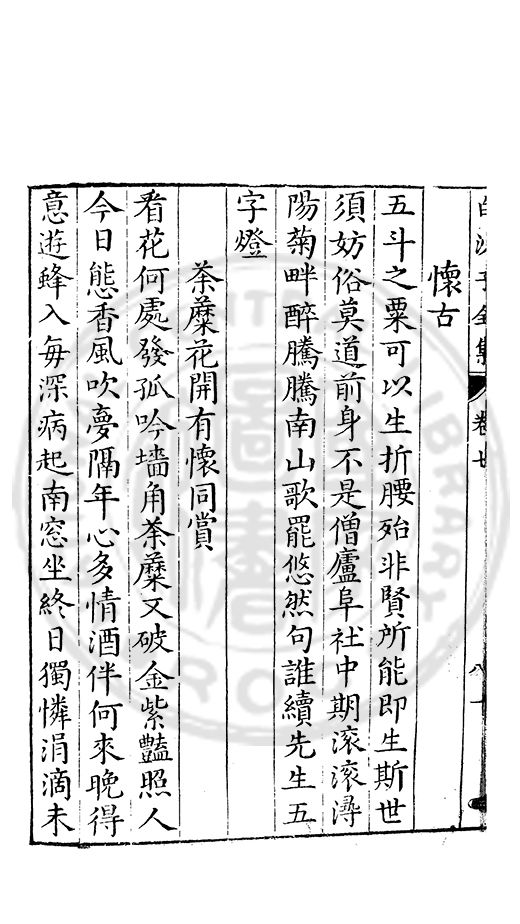 白沙子全集
懷古
五斗之粟可以生折腰殆非賢所能即生斯世
須妨俗莫道前身不是僧廬阜社中期滾滾潯
陽菊畔醉騰騰南山歌罷悠然句誰續先生五
字燈
荼蘼花開有懷同賞
看花何處發孤吟墻角荼蘼又破金紫豔照人
今日態香風吹夢隔年心多情酒伴何來晚得
意遊蜂入每深病起南窓坐終日獨憐涓滴未